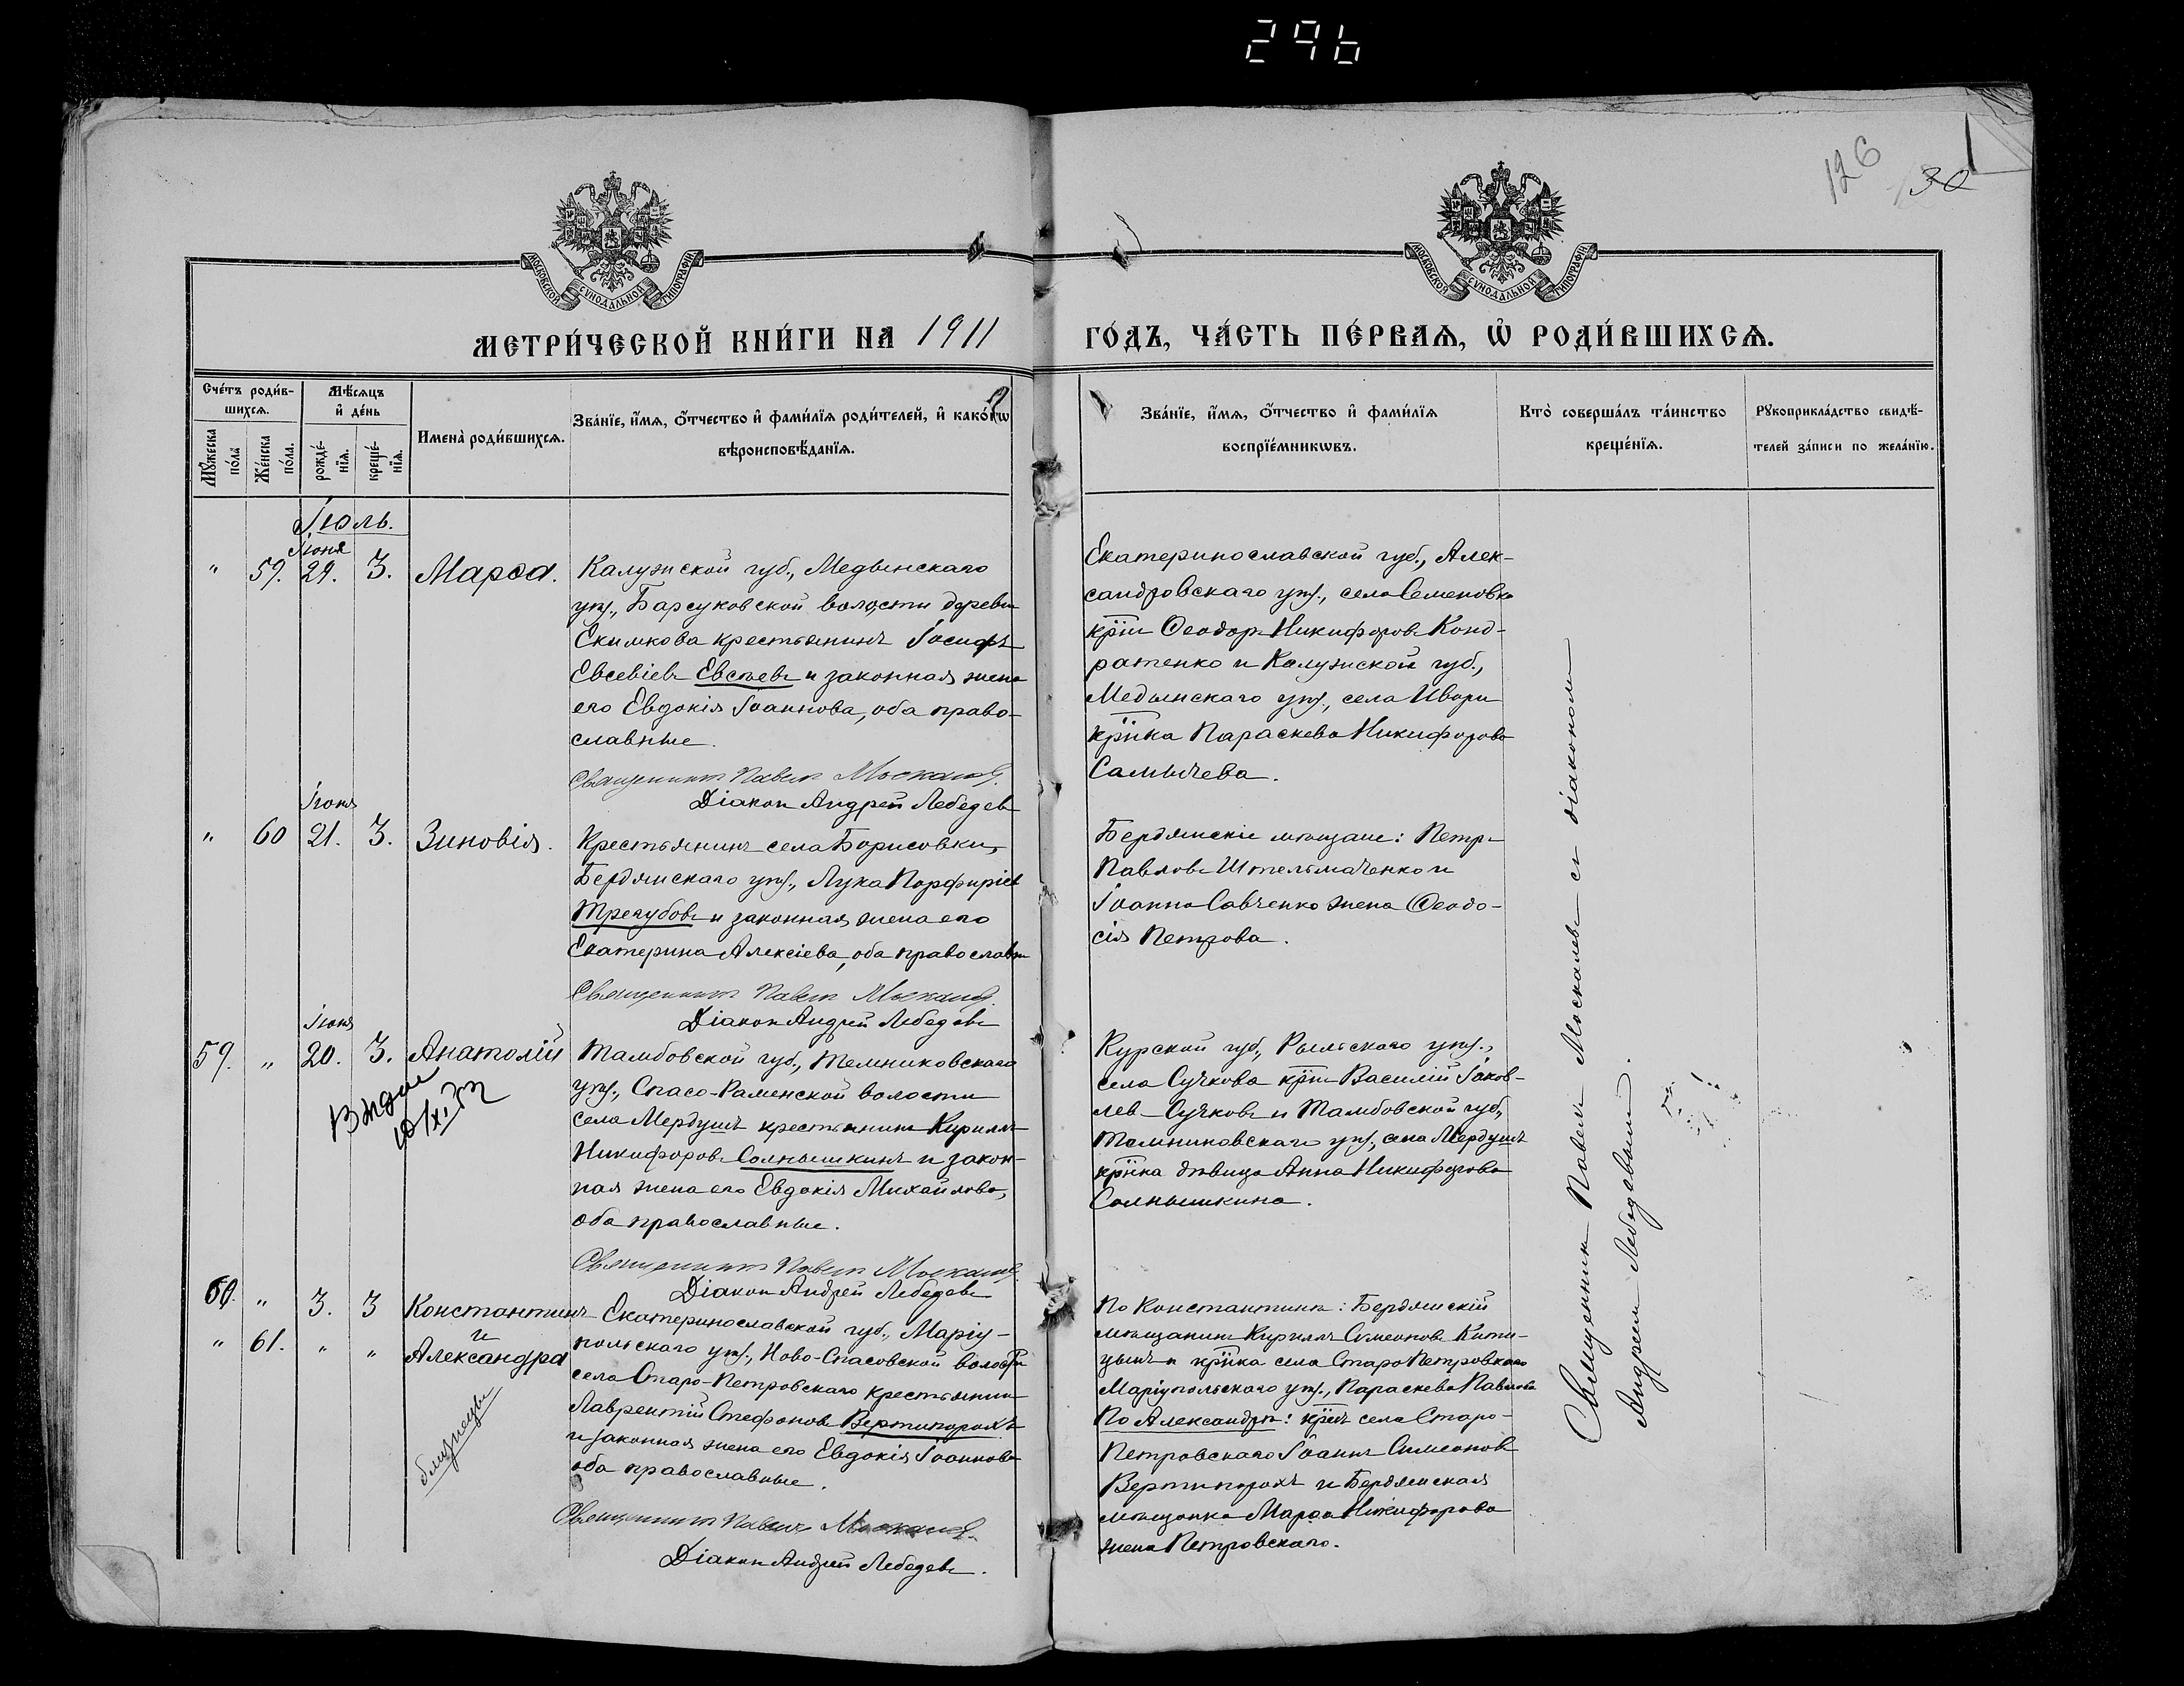 296
126
30
МОСКОВСКОЙ СѴНОДАЛЬНОЙ ТИПОГРАФІИ
МОСКОВСКОЙ СѴНОДАЛЬНОЙ ТИПОГРАФІИ
МЕТРИ́ЧЕСКОЙ КНИ́ГИ НА 1911
ГО́ДЪ, ЧА́СТЬ ПЕ́РВАѦ, Ѡ҆ РОДИ́ВШИХСѦ.
Сче́тъ роди́в-
шихсѧ.
Мꙋ́жеска
по́ла
Же́нска
по́ла.
Мѣ́сѧцъ
и҆ де́нь
рожде́-
нїѧ.
креще́-
нїѧ.
Имена̀ роди́вшихсѧ.
Зва́нїе, и҆́мѧ, ѻ҆́тчество и҆ фами́лїѧ роди́телей, и҆ како́гѡ
вѣроисповѣ́данїѧ.
Зва́нїе, и҆́мѧ, ѻ҆́тчество и҆ фами́лїѧ
воспрїе́мникѡвъ.
Кто̀ соверша́лъ та́инство
креще́нїѧ.
Рꙋкоприкла́дство свидѣ́-
телей за́писи по жела́нїю.
Іюль.
Іюня
" 59. 29. 3. Марѳа.
Калужской губ., Медынскаго
уѣз., Барсуковской волости деревни
Екимкова крестьянинъ Іосифъ
Евсевіевъ Евсѣевъ и законная жена
его Евдокія Іоаннова, оба право-
славные.
Священникъ Павелъ Москалевъ
Діаконъ Андрей Лебедевъ
Екатеринославской губ., Алек-
сандровскаго уѣз., села Семеновки
кр̅нъ Ѳеодоръ Никифоровъ Конд-
ратенко и Калужской губ.,
Медынскаго уѣз., села
кр̅нка Параскева Никифорова
Іюня
" 60 21. 3. Зиновія.
Крестьянинъ села Борисовки,
Бердянскаго уѣз., Лука Порфиріев
Трегубовъ и законная жена его
Екатерина Алексіева, оба православн
Священникъ Павелъ Москалевъ
Діаконъ Андрей Лебедевъ
Бердянскіе мѣщане: Петръ
Павловъ Штельмаченко и
Іоанна Савченко жена Ѳеодо-
сія Петрова.
Іюня
59. " 20. 3. Анатолій
Выдан
10/XI 52
Тамбовской губ., Темниковскаго
уѣз., Спасо-Раменской волости
села Мердушъ крестьянинъ Кириллъ
Никифоровъ Солнышкинъ и закон-
ная жена его Евдокія Михайлова,
оба православные.
Священникъ Павелъ Москалевъ
Діаконъ Андрей Лебедевъ
Курской губ., Рыльскаго уѣз.,
села Сучкова кр̅нъ Василій Іаков-
левъ Сучковъ и Тамбовской губ.,
Темниковскаго уѣз., села Мердушъ
кр̅нка дѣвица Анна Никифорова
Солнышкина.
60. " 3. 3 Константинъ
и
" 61. " " Александра
близнецы
Екатеринославской губ., Маріу-
польскаго уѣз., Ново-Спасовской волости
села Старо-Петровскаго крестьянин
Лаврентій Стефановъ Вертипорохъ
и законная жена его Евдокія Іоаннова
оба православные.
Священникъ Павелъ Москалевъ
Діаконъ Андрей Лебедевъ.
По Константинѣ: Бердянскій
мѣщанинъ Кириллъ Симеоновъ
и кр̅нка села Старо Петровскаго
Маріупольскаго уѣз., Параскева Павлова
По Александрѣ: кр̅нъ села Старо-
Петровскаго Іоаннъ Симеоновъ
Вертипорохъ и Бердянская
мѣщанка Марѳа Никифорова
жена Петровскаго.
Священникъ Павелъ Москалевъ съ діакономъ
Андреемъ Лебедевымъ.